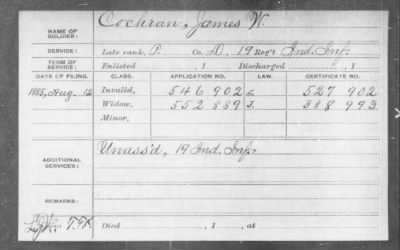 NAME OF SOLDIER: Cochran, James W.
SERVICE: Late rank, P. Co. D, 19 Reg't Ind. Inf.
TERM OF SERVICE: Enlisted , 1 Discharged , 1
DATE OF FILING. CLASS. APPLICATION NO. LAW. CERTIFICATE NO.
1885, Aug. 12 Invalid, 546 902 527 902
Widow, 552 889 388 993
Minor,
ADDITIONAL SERVICES: Unass'd, 19 Ind. Inf.
REMARKS:
Died , 1 , at